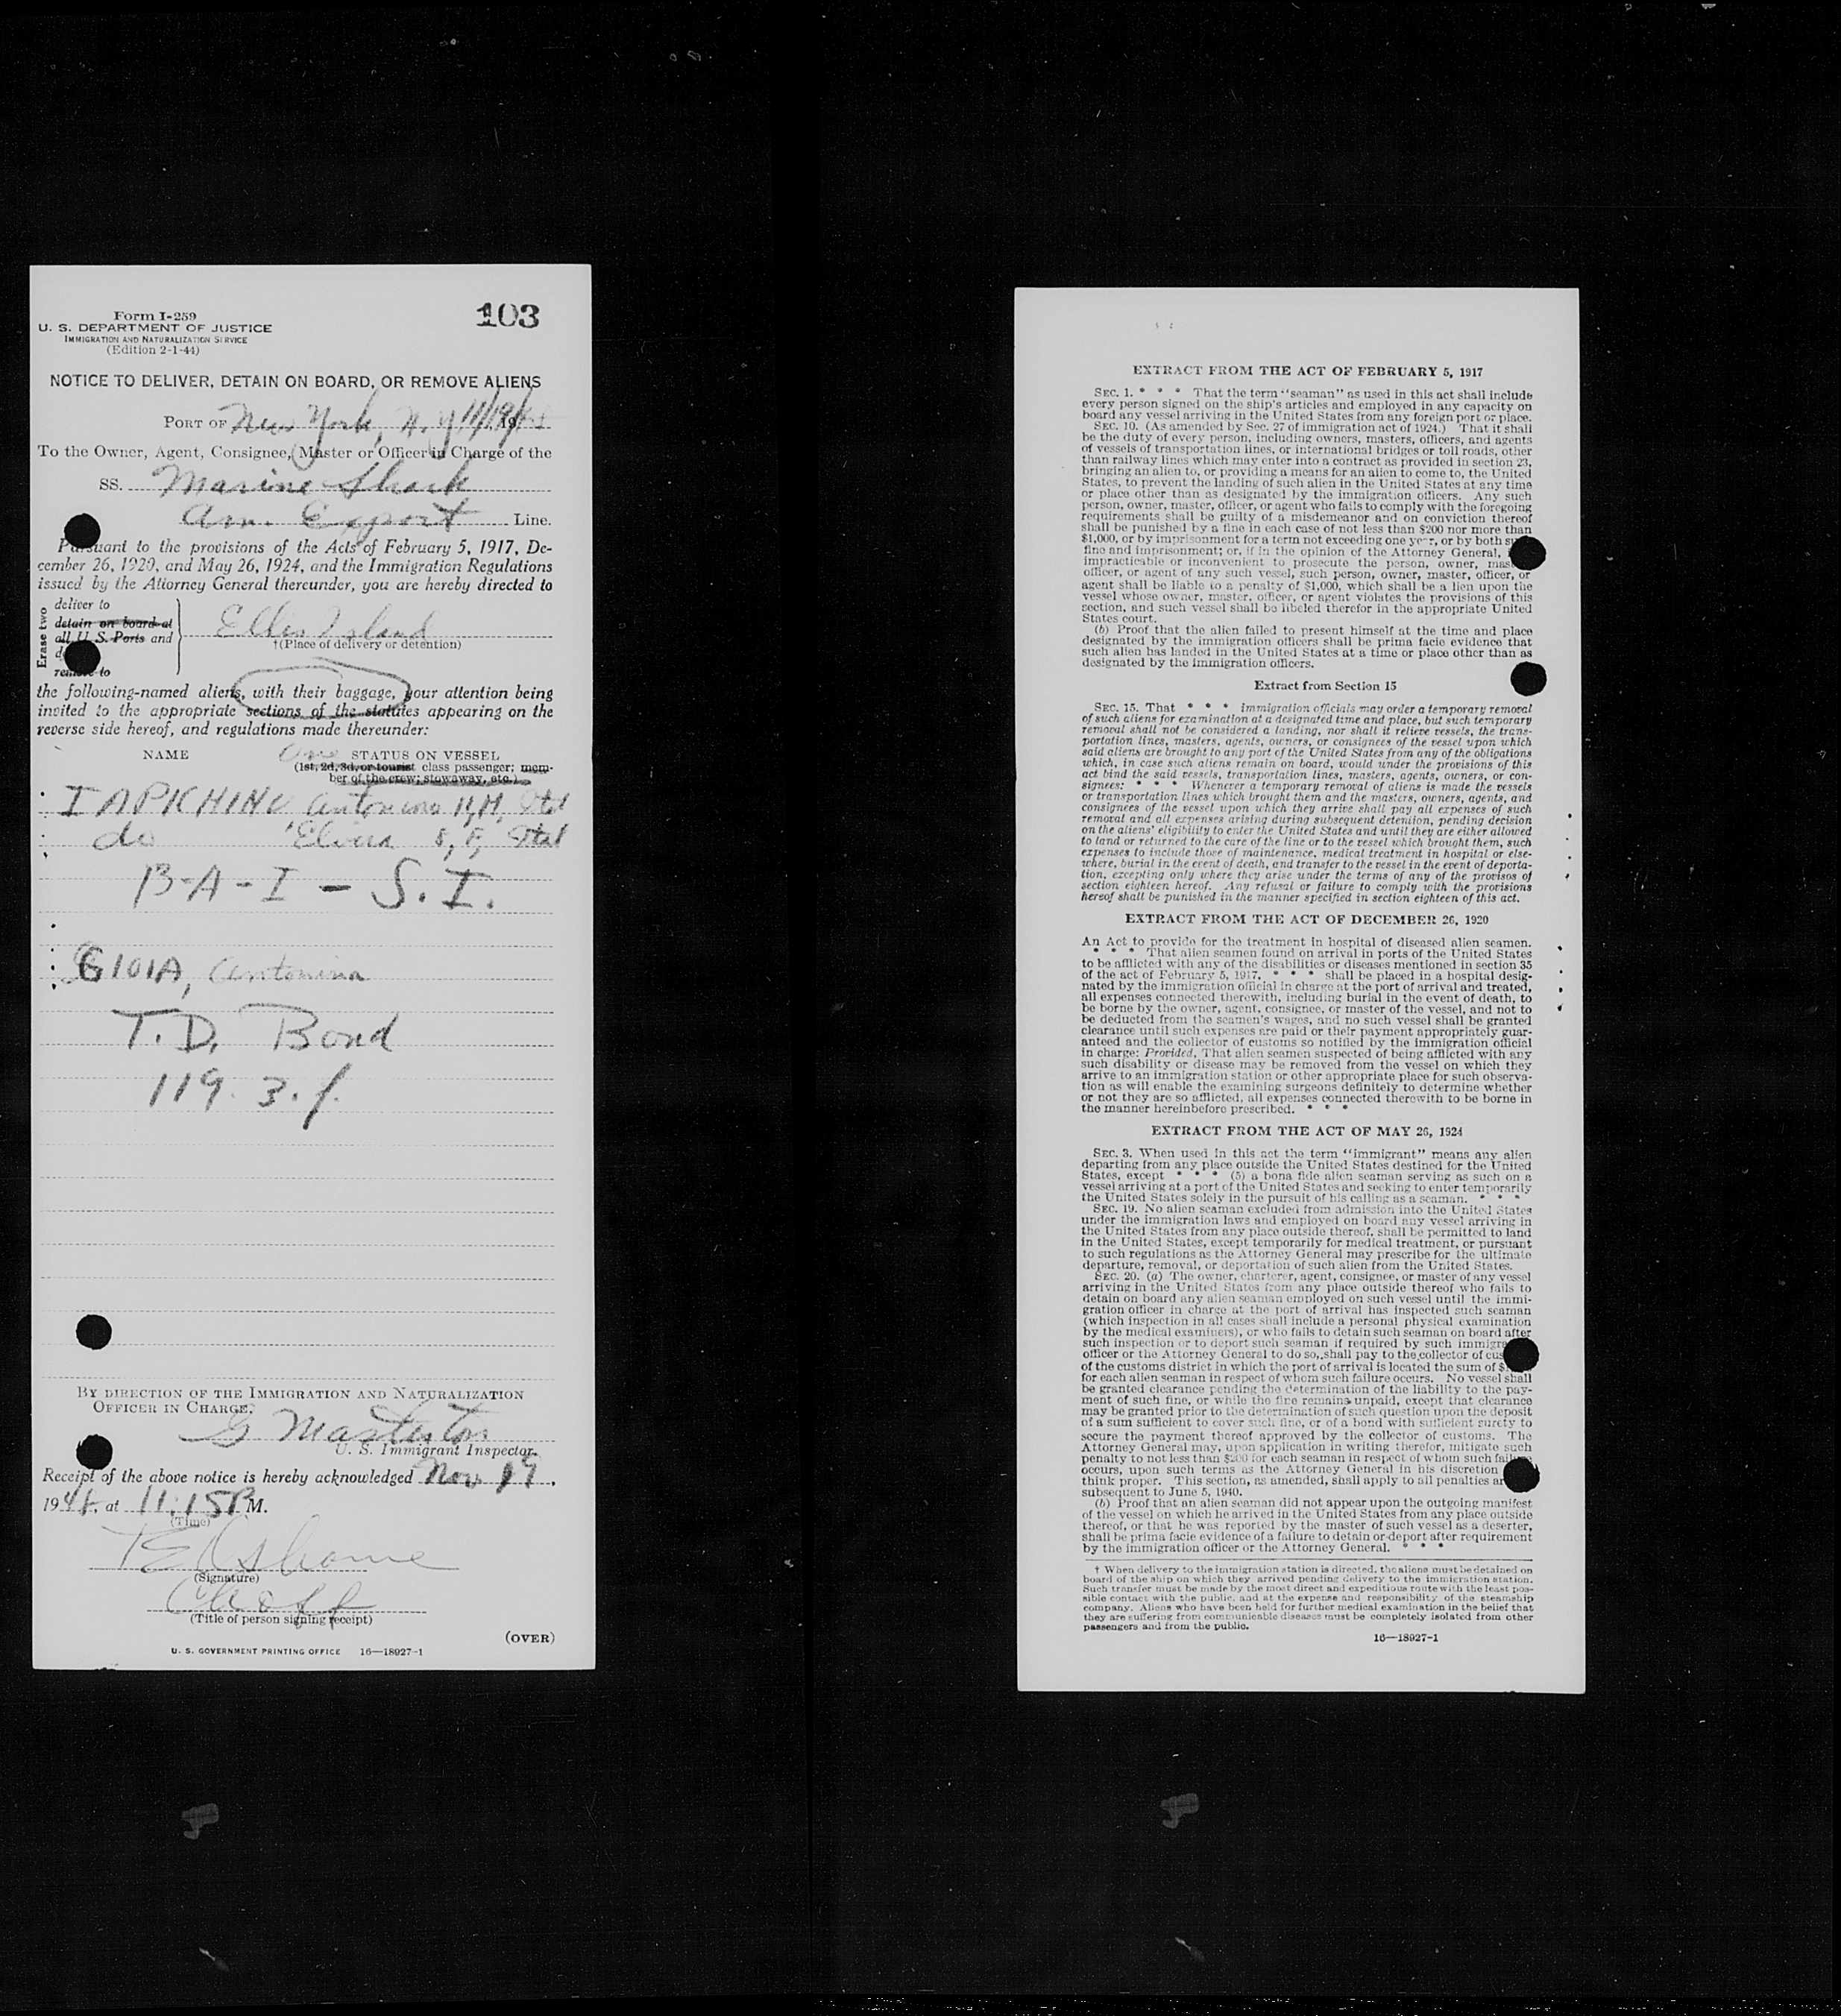 Form I-259
103
U. S. DEPARTMENT OF JUSTICE
IMMIGRATION AND NATURALIZATION SERVICE
(Edition 2-1-44)
NOTICE TO DELIVER, DETAIN ON BOARD, OR REMOVE ALIENS
PORT OF New York, N.Y. 11/19/
To the Owner, Agent, Consignee, Master or Officer in Charge of the
SS. Marine Shark
Am. Export Line.
Pursuant to the provisions of the Acts of February 5, 1917, De-
cember 26, 1920, and May 26, 1924, and the Immigration Regulations
issued by the Attorney General thereunder, you are hereby directed to
Erase two
deliver to
detain on board at
all U. S. Ports and
remove to
Ellis Island
†(Place of delivery or detention)
the following-named aliens, with their baggage, your attention being
invited to the appropriate sections of the statutes appearing on the
reverse side hereof, and regulations made thereunder:
NAME One STATUS ON VESSEL
(1st, 2d, 3d, or tourist class passenger; mem-
ber of the crew; stowaway, etc.)
Antonino
do Elvira 8, F, Ital
B-A-I - S.I.
GIOIA, Antonina
T.D. Bond
119. 3. f.
BY DIRECTION OF THE IMMIGRATION AND NATURALIZATION
OFFICER IN CHARGE.
G Masterton
U. S. Immigrant Inspector.
Receipt of the above notice is hereby acknowledged Nov 19,
194, at 11:15 P M.
(Time)
(Signature)
(Title of person signing receipt)
(OVER)
U. S. GOVERNMENT PRINTING OFFICE 16—18927-1
EXTRACT FROM THE ACT OF FEBRUARY 5, 1917
SEC. 1. * * * That the term "seaman" as used in this act shall include
every person signed on the ship's articles and employed in any capacity on
board any vessel arriving in the United States from any foreign port or place.
SEC. 10. (As amended by Sec. 27 of immigration act of 1924.) That it shall
be the duty of every person, including owners, masters, officers, and agents
of vessels of transportation lines, or international bridges or toll roads, other
than railway lines which may enter into a contract as provided in section 23,
bringing an alien to, or providing a means for an alien to come to, the United
States, to prevent the landing of such alien in the United States at any time
or place other than as designated by the immigration officers. Any such
person, owner, master, officer, or agent who fails to comply with the foregoing
requirements shall be guilty of a misdemeanor and on conviction thereof
shall be punished by a fine in each case of not less than $200 nor more than
$1,000, or by imprisonment for a term not exceeding one year, or by both such
fine and imprisonment; or, if in the opinion of the Attorney General,
impracticable or inconvenient to prosecute the person, owner, master,
officer, or agent of any such vessel, such person, owner, master, officer, or
agent shall be liable to a penalty of $1,000, which shall be a lien upon the
vessel whose owner, master, officer, or agent violates the provisions of this
section, and such vessel shall be libeled therefor in the appropriate United
States court.
(b) Proof that the alien failed to present himself at the time and place
designated by the immigration officers shall be prima facie evidence that
such alien has landed in the United States at a time or place other than as
designated by the immigration officers.
Extract from Section 15
SEC. 15. That * * * immigration officials may order a temporary removal
of such aliens for examination at a designated time and place, but such temporary
removal shall not be considered a landing, nor shall it relieve vessels, the trans-
portation lines, masters, agents, owners, or consignees of the vessel upon which
said aliens are brought to any port of the United States from any of the obligations
which, in case such aliens remain on board, would under the provisions of this
act bind the said vessels, transportation lines, masters, agents, owners, or con-
signees: * * * Whenever a temporary removal of aliens is made the vessels
or transportation lines which brought them and the masters, owners, agents, and
consignees of the vessel upon which they arrive shall pay all expenses of such
removal and all expenses arising during subsequent detention, pending decision
on the aliens' eligibility to enter the United States and until they are either allowed
to land or returned to the care of the line or to the vessel which brought them, such
expenses to include those of maintenance, medical treatment in hospital or else-
where, burial in the event of death, and transfer to the vessel in the event of deporta-
tion, excepting only where they arise under the terms of any of the provisos of
section eighteen hereof. Any refusal or failure to comply with the provisions
hereof shall be punished in the manner specified in section eighteen of this act.
EXTRACT FROM THE ACT OF DECEMBER 26, 1920
An Act to provide for the treatment in hospital of diseased alien seamen.
* * * That alien seamen found on arrival in ports of the United States
to be afflicted with any of the disabilities or diseases mentioned in section 35
of the act of February 5, 1917, * * * shall be placed in a hospital desig-
nated by the immigration official in charge at the port of arrival and treated,
all expenses connected therewith, including burial in the event of death, to
be borne by the owner, agent, consignee, or master of the vessel, and not to
be deducted from the seamen's wages, and no such vessel shall be granted
clearance until such expenses are paid or their payment appropriately guar-
anteed and the collector of customs so notified by the immigration official
in charge: Provided, That alien seamen suspected of being afflicted with any
such disability or disease may be removed from the vessel on which they
arrive to an immigration station or other appropriate place for such observa-
tion as will enable the examining surgeons definitely to determine whether
or not they are so afflicted, all expenses connected therewith to be borne in
the manner hereinbefore prescribed. * * *
EXTRACT FROM THE ACT OF MAY 26, 1924
SEC. 3. When used in this act the term "immigrant" means any alien
departing from any place outside the United States destined for the United
States, except * * * (5) a bona fide alien seaman serving as such on a
vessel arriving at a port of the United States and seeking to enter temporarily
the United States solely in the pursuit of his calling as a seaman. * * *
SEC. 19. No alien seaman excluded from admission into the United States
under the immigration laws and employed on board any vessel arriving in
the United States from any place outside thereof, shall be permitted to land
in the United States, except temporarily for medical treatment, or pursuant
to such regulations as the Attorney General may prescribe for the ultimate
departure, removal, or deportation of such alien from the United States.
SEC. 20. (a) The owner, charterer, agent, consignee, or master of any vessel
arriving in the United States from any place outside thereof who fails to
detain on board any alien seaman employed on such vessel until the immi-
gration officer in charge at the port of arrival has inspected such seaman
(which inspection in all cases shall include a personal physical examination
by the medical examiners), or who fails to detain such seaman on board after
such inspection or to deport such seaman if required by such immigration
officer or the Attorney General to do so, shall pay to the collector of customs
of the customs district in which the port of arrival is located the sum of
for each alien seaman in respect of whom such failure occurs. No vessel shall
be granted clearance pending the determination of the liability to the pay-
ment of such fine, or while the fine remains unpaid, except that clearance
may be granted prior to the determination of such question upon the deposit
of a sum sufficient to cover such fine, or of a bond with sufficient surety to
secure the payment thereof approved by the collector of customs. The
Attorney General may, upon application in writing therefor, mitigate such
penalty to not less than $200 for each seaman in respect of whom such failure
occurs, upon such terms as the Attorney General in his discretion
think proper. This section, as amended, shall apply to all penalties
subsequent to June 5, 1940.
(b) Proof that an alien seaman did not appear upon the outgoing manifest
of the vessel on which he arrived in the United States from any place outside
thereof, or that he was reported by the master of such vessel as a deserter,
shall be prima facie evidence of a failure to detain or deport after requirement
by the immigration officer or the Attorney General. * * *
† When delivery to the immigration station is directed, the aliens must be detained on
board of the ship on which they arrived pending delivery to the immigration station.
Such transfer must be made by the most direct and expeditious route with the least pos-
sible contact with the public, and at the expense and responsibility of the steamship
company. Aliens who have been held for further medical examination in the belief that
they are suffering from communicable diseases must be completely isolated from other
passengers and from the public.
16—18927-1